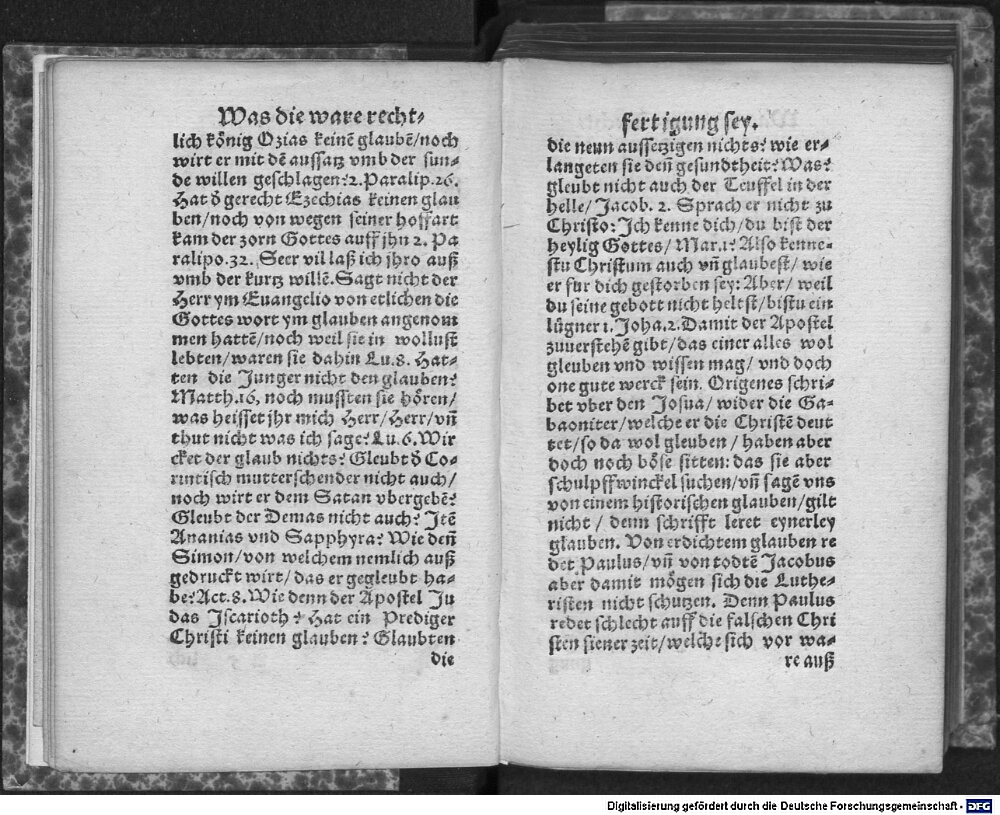 Was die ware recht⸗
lich koͤnig Ozias keinē glaubē/noch
wirt er mit dē aussatz vmb der sun⸗
de willen geschlagen? 2. Paralip. 26.
Hat d̕ gerecht Ezechias keinen glau
ben/noch von wegen seiner hoffart
kam der zorn Gottes auff jhn 2. Pa
ralipo. 32. Seer vil laß ich jhro auß
vmb der kurtz willē. Sagt nicht der
Herr ym Euangelio von etlichen die
Gottes wort ym glauben angenom
men hattē/noch weil sie in wollust
lebten/waren sie dahin Lu. 8. Hat⸗
ten die Junger nicht den glauben?
Matth. 16, noch mussten sie hoͤren/
was heisset jhr mich Herr/Herr/vñ
thut nicht was ich sage? Lu. 6. Wir
cket der glaub nichts? Gleubt d̕ Co⸗
rintisch mutterschender nicht auch/
noch wirt er dem Satan vbergebē?
Gleubt der Demas nicht auch? Jtē
Ananias vnd Sapphyra? Wie deñ
Simon/von welchem nemlich auß
gedruckt wirt/das er gegleubt ha⸗
be? Act. 8. Wie denn der Apostel Ju
das Iscarioth? Hat ein Prediger
Christi keinen glauben? Glaubten
die
fertigung sey.
die neun aussetzigen nichts? wie er⸗
langeten sie deñ gesundtheit? Was?
gleubt nicht auch der Teuffel in der
helle/ Jacob. 2. Sprach er nicht zu
Christo: Ich kenne dich/du bist der
heylig Gottes/ Mar. 1? Also kenne⸗
stu Christum auch vñ glaubest/ wie
er fur dich gestorben sey: Aber/ weil
du seine gebott nicht heltst/bistu ein
lügner 1. Joha. 2. Damit der Apostel
zuuerstehē gibt/das einer alles wol
gleuben vnd wissen mag/ vnd doch
one gute werck sein. Origenes schri⸗
bet vber den Josua/ wider die Ga⸗
baoniter/welche er die Christē deut
tet/so da wol gleuben / haben aber
doch noch boͤse sitten: das sie aber
schulpffwinckel suchen/vñ sagē vns
von einem historischen glauben/gilt
nicht / denn schrifft leret eynerley
glauben. Von erdichtem glauben re
det Paulus/vñ von todtē Jacobus
aber damit moͤgen sich die Luthe⸗
risten nicht schutzen. Denn Paulus
redet schlecht auff die falschen Chri
sten siener zeit/welche sich vor wa⸗
re auß
Digitalisierung gefördert durch die Deutsche Forschungsgemeinschaft - DFG